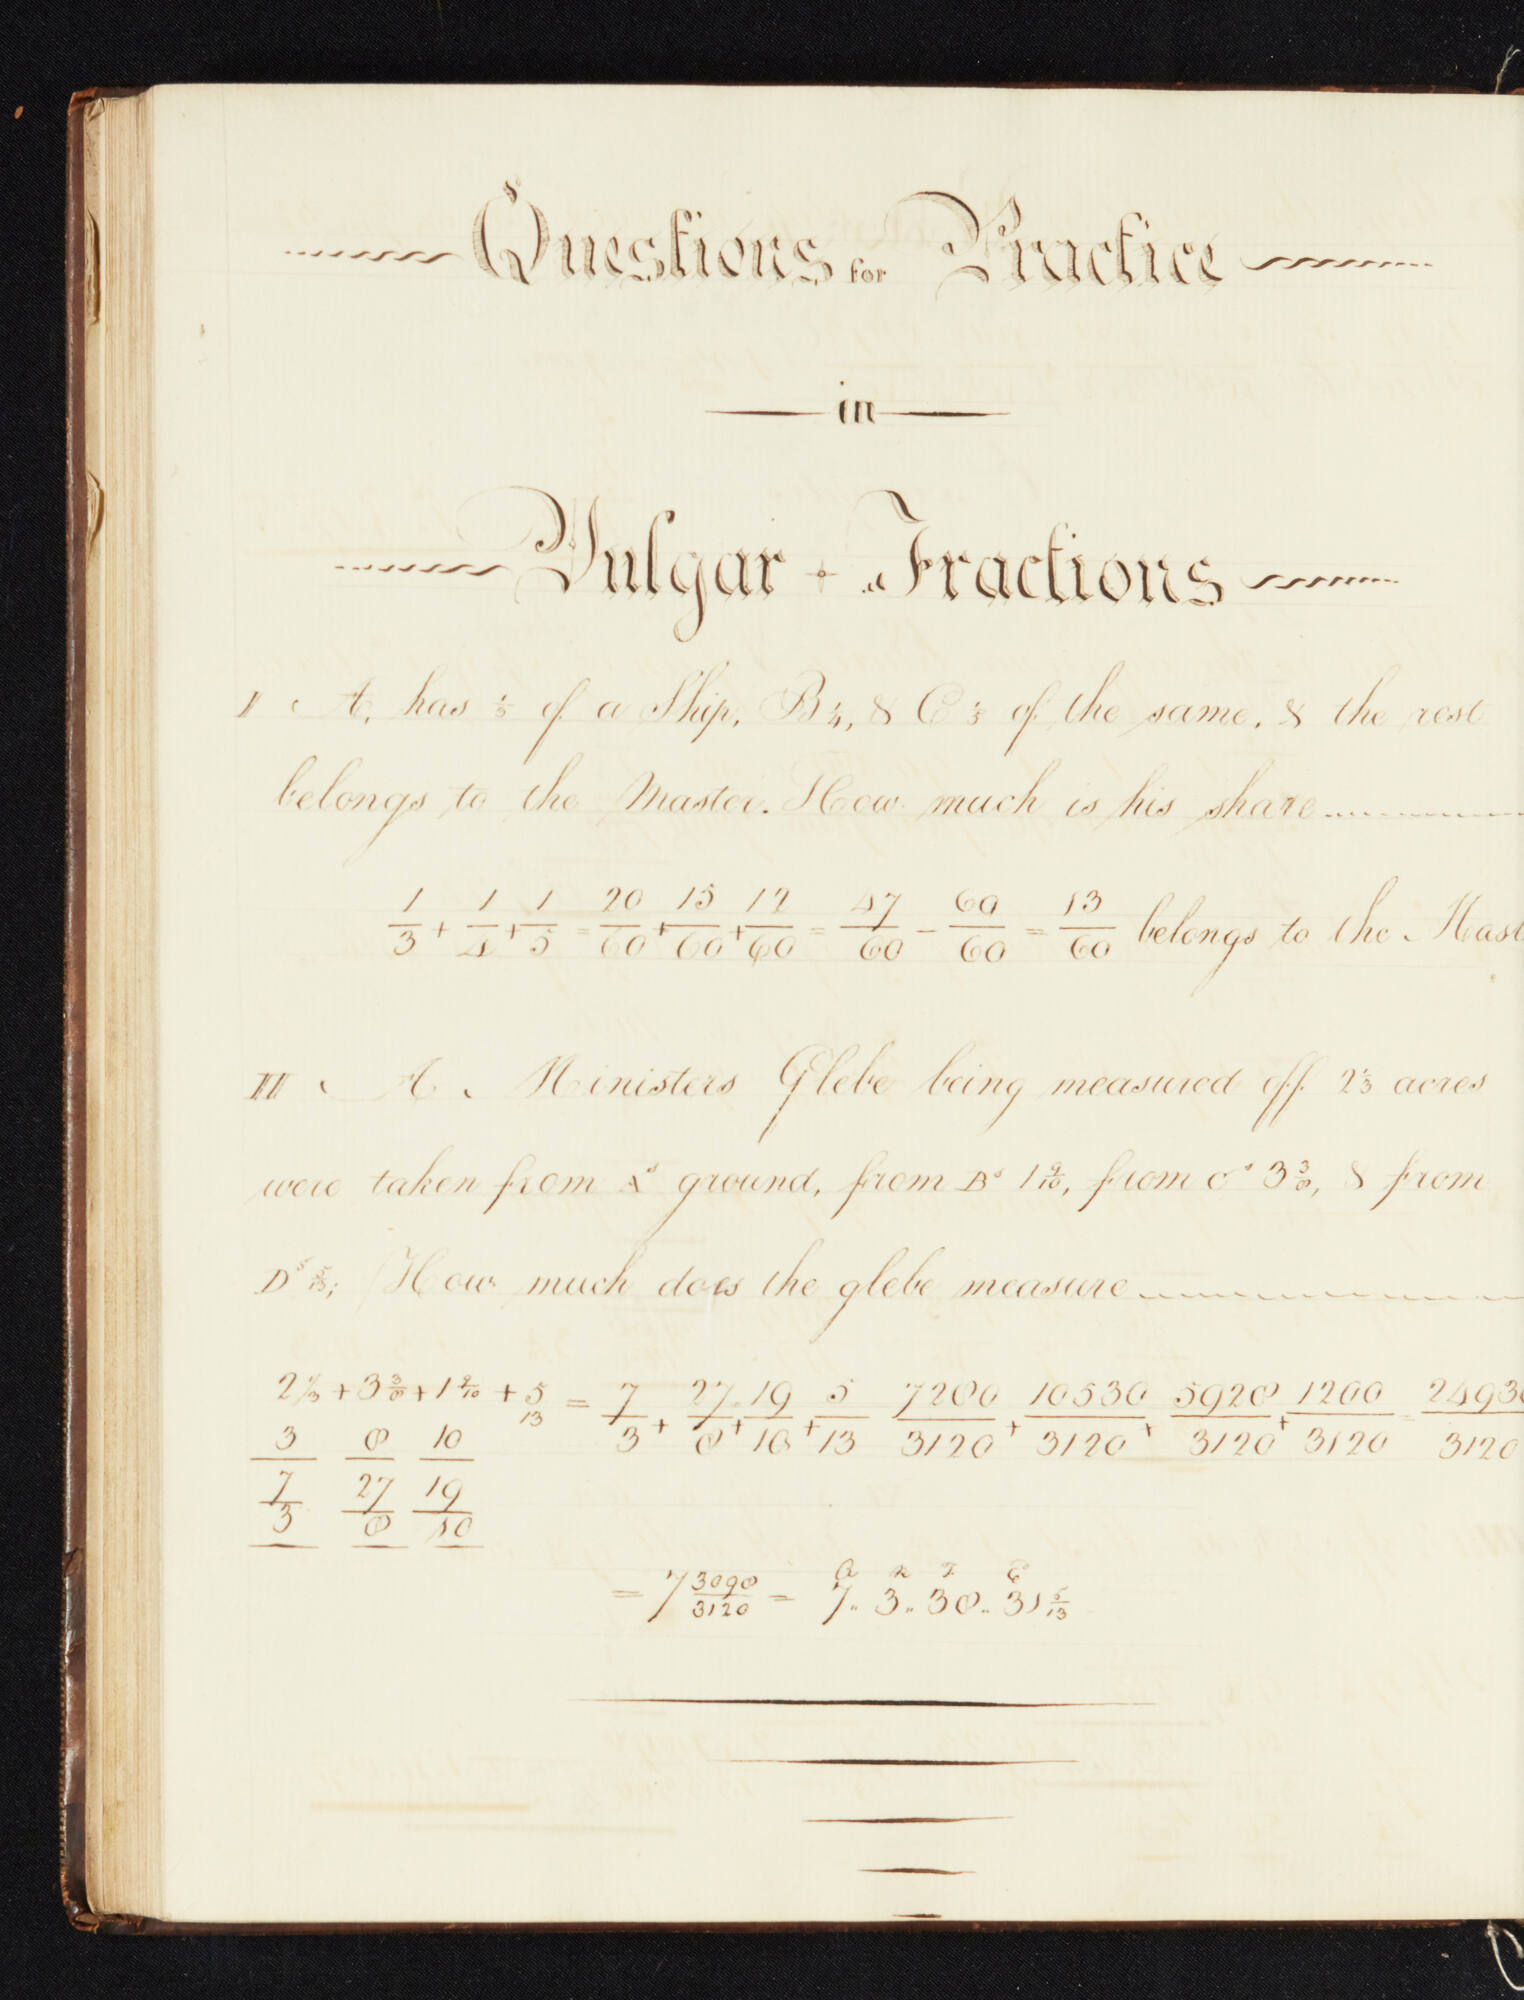 Questions for Practice
in
Vulgar Fractions
I A, has 1/3 of a Ship, B 1/4, & C 1/5 of the same, & the rest
belongs to the Master. How much is his share
1/3 + 1/4 + 1/5 = 20/60 + 15/60 + 12/60 = 47/60 - 60/60 = 13/60 belongs to the Mast
II A Ministers Glebe being measured off 2 1/3 acres
were taken from As ground, from Bs 1 9/10, from Cs 3 3/8, & from
Ds 5/13; How much does the glebe measure
2 1/3 + 3 3/8 + 1 9/10 + 5/13 = 7/3 + 27/8 + 19/10 + 5/13 7280/3120 + 10530/3120 + 5928/3120 + 1200/3120 = 24938/3120
3 8 10
7/3 27/8 19/10
= 7 3098/3120 = 7 A .. 3 R .. 38 F .. 31 5/13